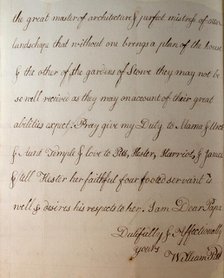 the great master of architecture & perfect mistress of
landschape that without one brings a plan of the house
& the other of the gardens of Stowe they may not be
so well recived as they may on account of their great
abilities expect. Prey give my Duty to Mama & Uncle
& Aunt Temple & love to Pitt, Hester, Harriot, & James
& tell Hester her faithful four footed servant is
well & desires his respects to her. I am Dear Papa
Dutifully & Affectionately
yours
William Pitt